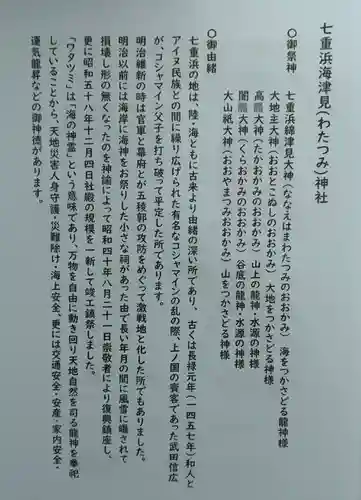 七重浜海津見(わたつみ)神社
〇御祭神 七重浜綿津見大神(ななえはまわたつみのおおかみ) 海をつかさどる龍神様
大地主大神(おおとこぬしのおおかみ) 大地をつかさどる神様
高龗大神(たかおかみのおおかみ) 山上の龍神・水源の神様
闇龗大神(くらおかみのおおかみ) 谷底の龍神・水源の神様
大山祇大神(おおやまつみおおかみ) 山をつかさどる神様
〇御由緒
七重浜の地は、陸・海ともに古来より由緒の深い所であり、古くは長禄元年(一四五七年)和人と
アイヌ民族との間に繰り広げられた有名なコシャマインの乱の際、上ノ国の賓客であった武田信広
が、コシャマイン父子を打ち破って平定した所であります。
明治維新の時は官軍と幕府とが五稜郭の攻防をめぐって激戦地と化した所でもありました。
明治以前には海岸に海神をお祭りした小さな祠があった由で長い年月の間に風雪に曝されて
損壊し形の無くなったのを神諭によって昭和四十年八月二十一日崇敬者により復興鎮座し、
更に昭和五十八年十二月四日社殿の規模を一新して竣工鎮祭しました。
「ワタツミ」は「海の神霊」という意味であり、万物を自由に動き回り天地自然を司る龍神を奉祀
していることから、天地災害人身守護・災難除け・海上安全、更には交通安全・安産・家内安全・
運気龍昇などの御神徳があります。